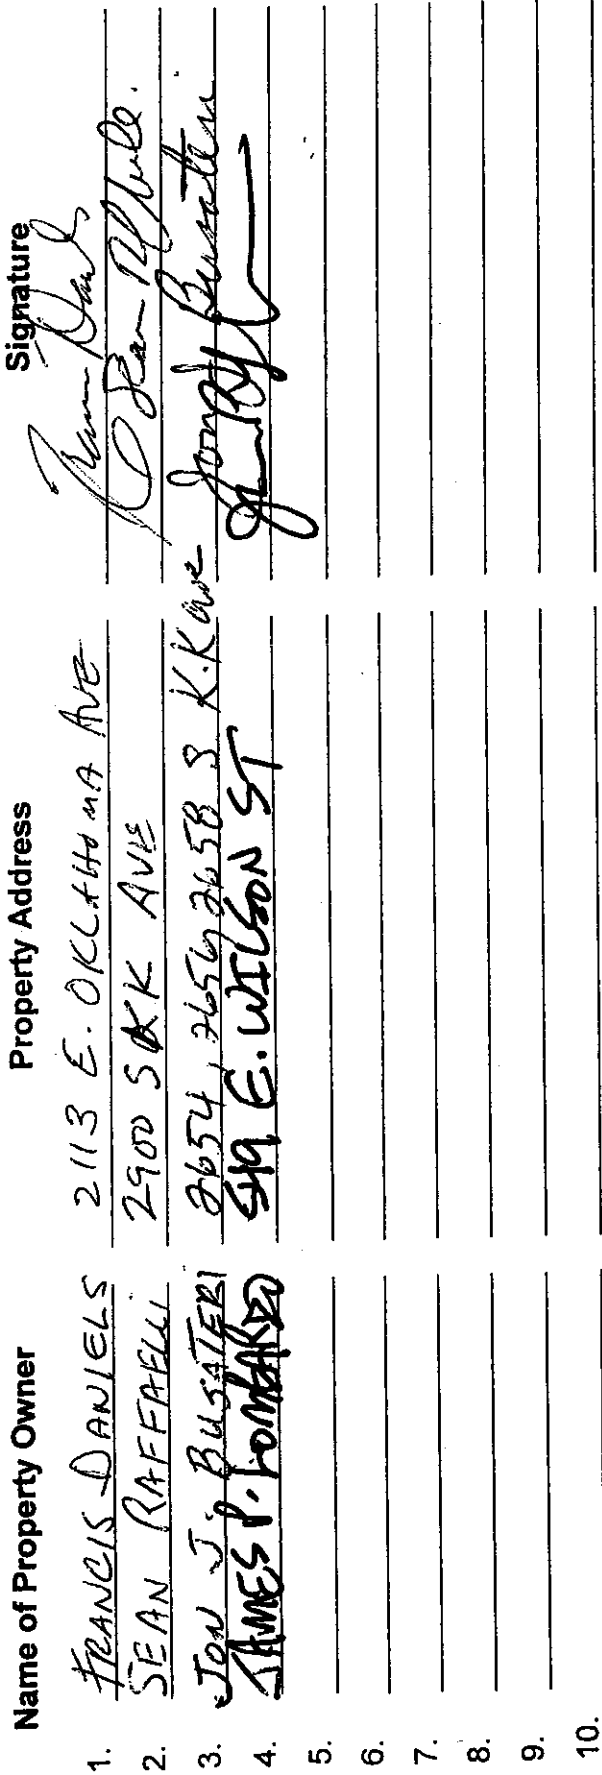 Name of Property Owner Property Address Signature
1. FRANCIS DANIELS 2113 E. OKLAHOMA AVE
2. SEAN RAFFAELLI 2900 S KK AVE Sean Raffaelli.
3. JON J. BUSATERI 2654, 2656, 2658 S K.K ave Jon J Busateri
4. JAMES P. LOMBARDO E. WILSON ST
5.
6.
7.
8.
9.
10.